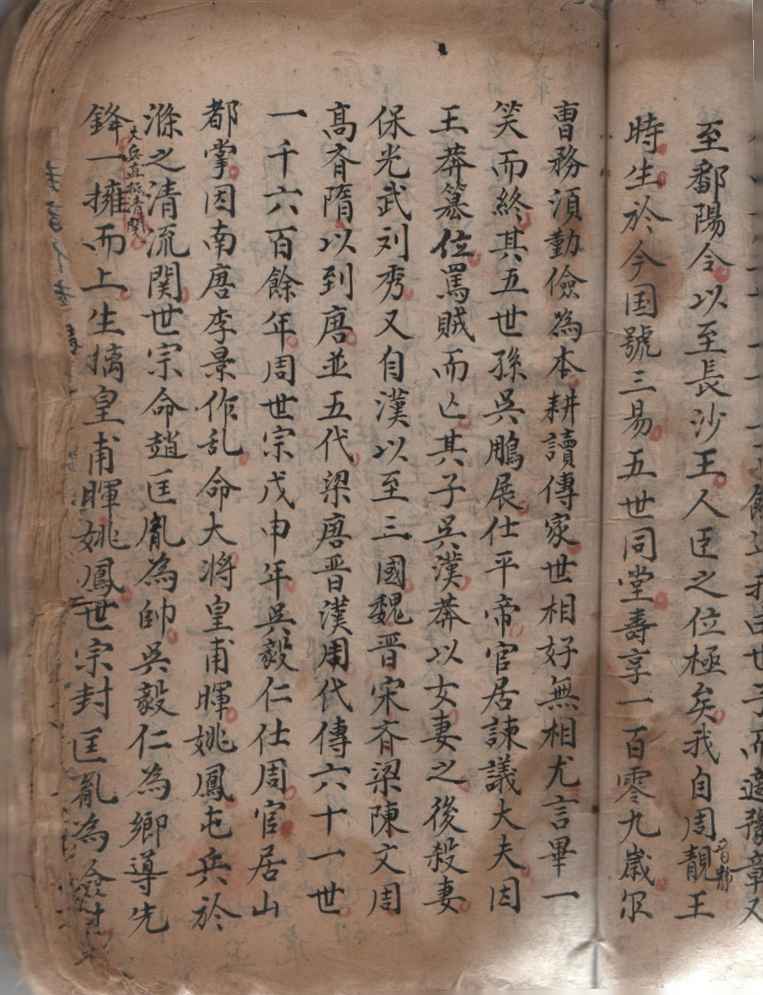 而適豫章又
至鄱陽令以至長沙王人臣之位極矣我自周靚音静王
時生於今国號三易五世同堂壽享一百零九歲尔
曹務須勤儉為本耕讀傳家世相好無相尤言畢一
笑而終其五世孫吳鵬展仕平帝官居諫議大夫因
王莽篡位罵賊而亡其子吳漢莽以女妻之後殺妻
保光武刘秀又自漢以至三國魏晋宋斉梁陳文周
髙斉隋以到唐並五代梁唐晋漢周代傳六十一世
一千六百餘年周世宗戊申年吳毅仁仕周官居山
都掌因南唐李景作乱命大將皇甫暉姚鳳屯兵於
滁之清流関世宗命趙匡胤為帥吳毅仁為鄉導先
大兵直抵清関
鋒一擁而上生擒皇甫暉姚鳳世宗封匡胤為